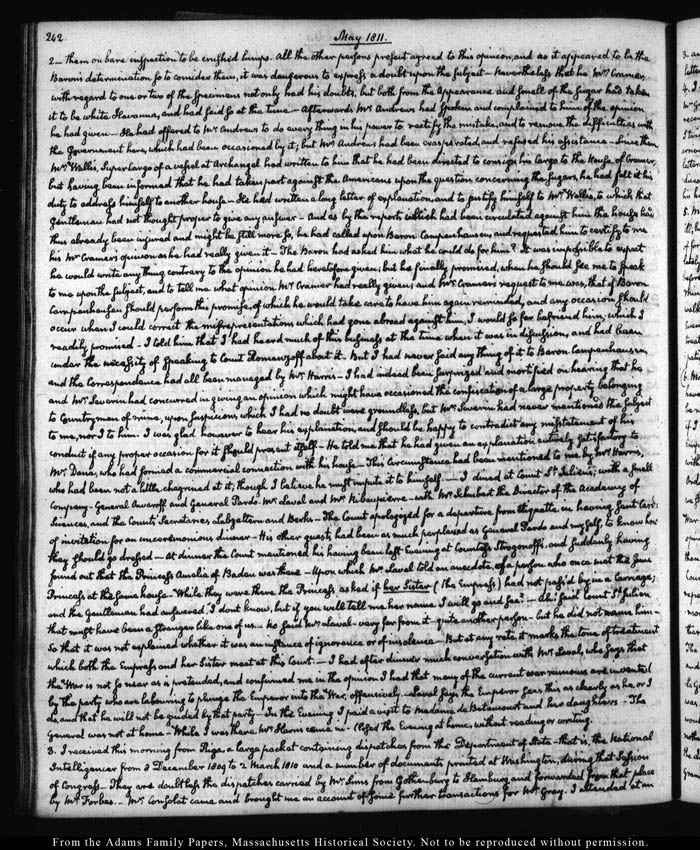 242
May 1811.
2— them on bare inspection to be crushed lumps. All the other persons present agreed to this opinion, and as it appeared to be the
Baron's determination so to consider them, it was dangerous to express a doubt upon the subject— Nevertheless that he Mr: Cramer
with regard to one or two of the specimens not only had his doubts, but both from the appearance and smell of the sugar had taken
it to be white Havanna, and had said so at the time— Afterwards Mr: Andrews had spoken and complained to him of the opinion
he had given— He had offered to Mr: Andrews to do every thing in his power to rectify the mistake, and to remove the difficulties with
the Government here, which had been occasioned by it; but Mr: Andrews had been exasperated, and refused his assistance— Since then
Mr: Wallis, Supercargo of a vessel at Archangel had written to him that he had been directed to consign his Cargo to the House of Cramer,
but having been informed that he had taken part against the Americans upon the question concerning the Sugars, he had felt it his
duty to address himself to another house— He had written a long letter of explanation, and to justify himself to Mr: Wallis, to which that
Gentleman had not thought proper to give any answer— And as by the reports which had been circulated against him the house had
thus already been injured and might be still more so, he had called upon Baron Campenhausen, and requested him to certify to me
his Mr: Cramer's opinion as he had really given it— The Baron had asked him what he could do for him? It was impossible to expect
he would write any thing contrary to the opinion he had heretofore given; but he finally promised, when he should see me to speak
to me upon the subject, and to tell me what opinion Mr: Cramer had really given; and Mr: Cramer's request to me was, that if Baron
Campenhausen should perform this promise, of which he would take care to have him again reminded, and any occasion should
occur when I could correct the misrepresentations which had gone abroad against him, I would so far befriend him; which I
readily promised— I told him that I had heard much of this business at the time when it was in discussion, and had been
under the necessity of speaking to Count Romanzoff about it. But I had never said any thing of it to Baron Campenhausen,
and the Correspondence had all been managed by Mr: Harris— I had indeed been surprized and mortified on hearing that he
and Mr: Severin had concurred in giving an opinion which might have occasioned the confiscation of a large property belonging
to Countrymen of mine, upon suspicions which I had no doubt were groundless, but Mr: Severin had never mentioned the subject
to me, nor I to him. I was glad however to hear his explanation, and should be happy to contradict any misstatement of his
conduct if any proper occasion for it should present itself— He told me that he had given an explanation entirely satisfactory to
Mr: Dana, who had formed a commercial connection with his house— This circumstance had been mentioned to me by Mr: Harris,
who had been not a little chagrined at it; though I believe he must impute it to himself.— I dined at Count St: Julien's, with a small
company— General Awaroff and General Pardo. Mr: Laval and Mr: Ribeaupierre— with Mr: Schubert the Director of the Academy of
Sciences, and the Count's Secretaries, Lebzeltern and Berks— The Count apologized for a departure from etiquette in having sent Cards
of invitation for an unceremonious dinner— His other guests had been as much perplexed as General Pardo and myself, to know how
they should go dressed— At dinner the Count mentioned his having been last Evening at Countess Strogonoff's, and suddenly having
found out that the Princess Amelia of Baden was there— Upon which Mr: Laval told an anecdote, of a person who once met the same
Princess at the same house. While they were there the Princess asked if her Sister (the Empress) had not pass'd by in a Carriage;
and the Gentleman had answered I dont know, but if you will tell me her name I will go and see.— Ah! said Count St: Julien
that must have been a stranger like one of us— No said Mr: Laval— very far from it— quite another person— but he did not name him—
So that it was not explained whether it was an instance of ignorance or of insolence— But at any rate it marks the tone of treatment
which both the Empress and her Sister meet at this Court.— I had after dinner much conversation with Mr: Laval, who says that
the War is not so near as is pretended, and confirmed me in the opinion I had that many of the current war rumours are invented
by the party who are labouring to plunge the Emperor into the War, offensively— Laval says the Emperor sees this as clearly as he, or I
do, and that he will not be guided by that party— In the Evening I paid a visit to Madame de Betancourt and her daughters— The
General was not at home— While I was there, Mr: Harris came in— Closed the Evening at home, without reading or writing.
3. I received this morning from Riga, a large packet containing dispatches from the Department of State— that is, the National
Intelligencer from 9 December 1809 to 2 March 1810 and a number of documents printed at Washington, during that Session
of Congress— They are doubtless the dispatches carried by Mr: Sims from Gothenburg to Hamburg and forwarded from that place
by Mr: Forbes.— Mr: Consolat came and brought me an account of some further transactions for Mr: Gray. I attended at an
From the Adams Family Papers, Massachusetts Historical Society. Not to be reproduced without permission.